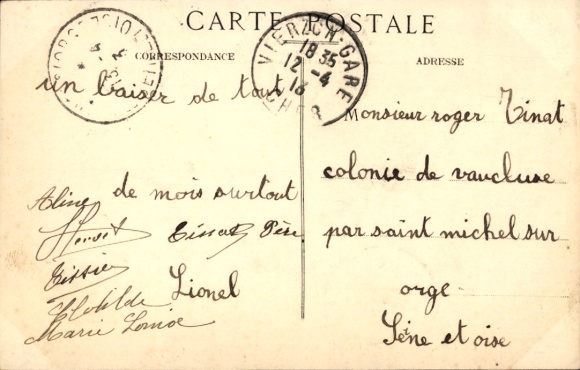 CARTE POSTALE
CORRESPONDANCE
ADRESSE
VIERZON-GARE
18 35
12 -4
16
CHER
un baiser de tout
de mois surtout
Aline
Tissier
Clotilde
Marie Louise
Père
Lionel
Monsieur roger Tinat
colonie de vaucluse
par saint michel sur
orge
Seine et oise